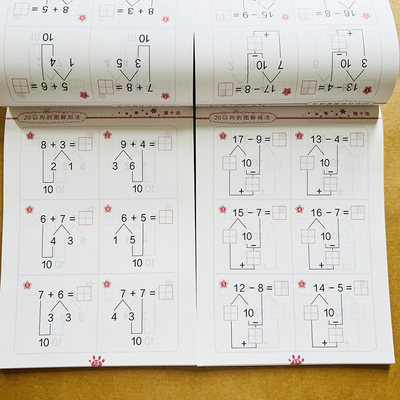 8 + 5 =
8 + 3 =
5 + 6 =
7 + 8 =
15 - 9 =
16 - 8 =
17 - 8 =
13 - 4 =
20以内的图解加法
凑十法
8 + 3 =
2 1
10
9 + 4 =
3 6
10
6 + 7 =
4 3
10
6 + 5 =
1 5
10
7 + 6 =
3 3
10
7 + 7 =
4 3
10
20以内的图解减法
破十法
17 - 9 =
10
-
+
13 - 4 =
10
-
+
15 - 7 =
10
-
+
16 - 7 =
10
-
+
12 - 8 =
10
-
+
14 - 5 =
10
-
+